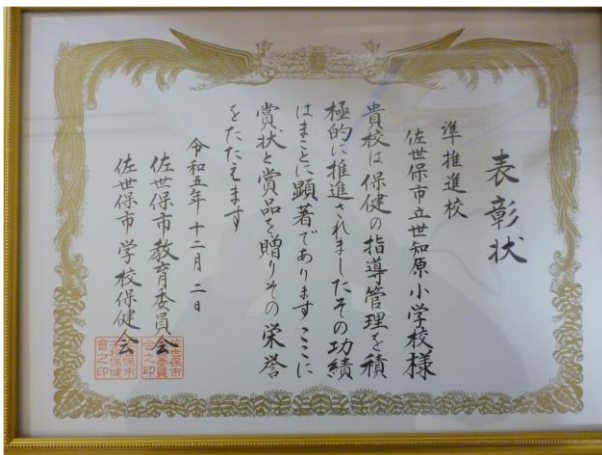 表彰状
準推進校
佐世保市立世知原小学校様
貴校は保健の指導管理を積
極的に推進されましたその功績
はまことに顕著でありますここに
賞状と賞品を贈りその栄誉
をたたえます
令和五年十二月二日
佐世保市教育委員会
佐世保市学校保健会